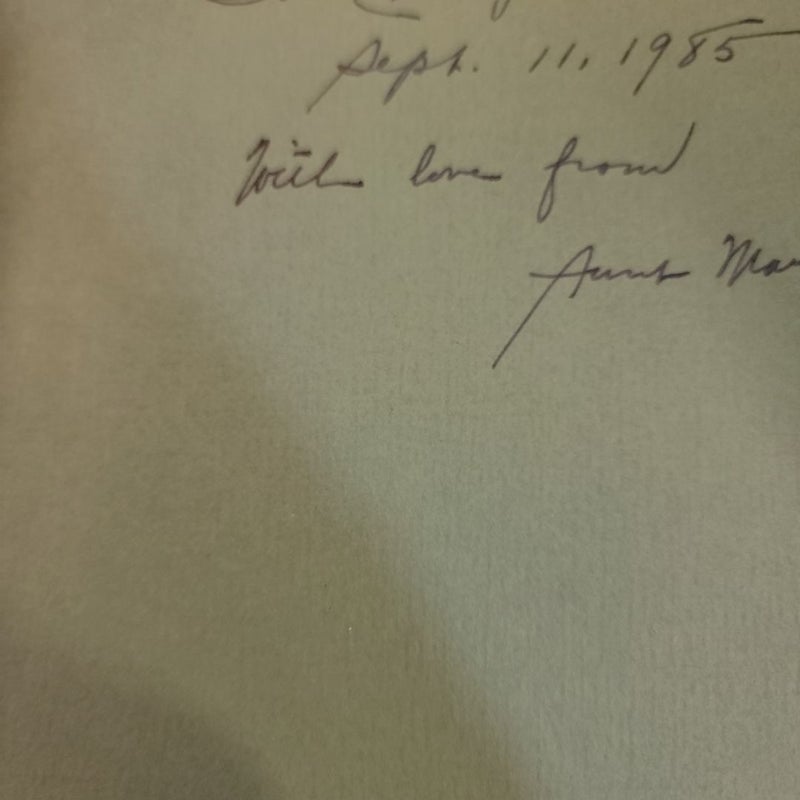 Sept. 11, 1985
With love from
Aunt